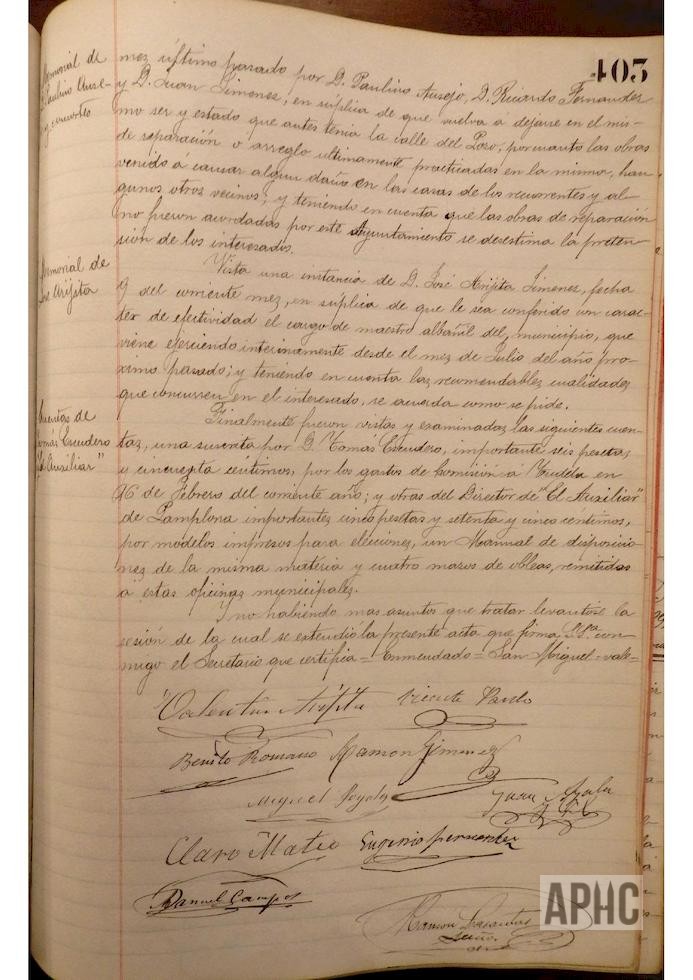 403
Memorial de
D. Paulino Ausejo
y consortes
mez último pasado por D. Paulino Ausejo, D. Ricardo Fernandez
y D. Juan Jimenez, en suplica de que vuelva á dejarse en el mis-
mo ser y estado que antes tenia la calle del Pozo; por cuanto las obras
de reparación o arreglo ultimamente practicadas en la misma, han
venido á causar algun daño en las casas de los recurrentes y al-
gunos otros vecinos; y teniendo en cuenta que las obras de reparación
no fueron acordadas por este Ayuntamiento se desestima la preten-
sión de los interesados.
Memorial de
José Arijita
Vista una instancia de D. José Arijita Jimenez, fecha
9 del corriente mez, en suplica de que le sea conferido con carac-
ter de efectividad el cargo de maestro albañil del municipio, que
viene ejerciendo interinamente desde el mez de Julio del año pro-
ximo pasado; y teniendo en cuenta las recomendables cualidades
que concurren en el interesado, se acuerda como se pide.
Cuentas de
Tomás Escudero
"El Auxiliar"
Finalmente fueron vistas y examinadas las siguientes cuen-
tas, una suscrita por D. Tomás Escudero, importante seis pesetas
y cincuenta centimos, por los gastos de comisión á Tudela en
26 de Febrero del corriente año; y otras del Director de "El Auxiliar"
de Pamplona importantes cinco pesetas y setenta y cinco céntimos,
por modelos impresos para elecciones, un Manual de disposicio-
nes de la misma materia y cuatro mazos de obleas, remitidas
á estas oficinas municipales.
Y no habiendo mas asuntos que tratar levantose la
sesión de la cual se extendió la presente acta que firma S.Sa. con-
migo el Secretario que certifica = Enmendado = San Miguel = vale-
Valentin Arijita Vicente Pardo
Benito Romano Ramon Jimenez
Miguel Juan Ayala
Claro Mateo Eugenio Fernandez
Manuel Campos
Ramon
APHC